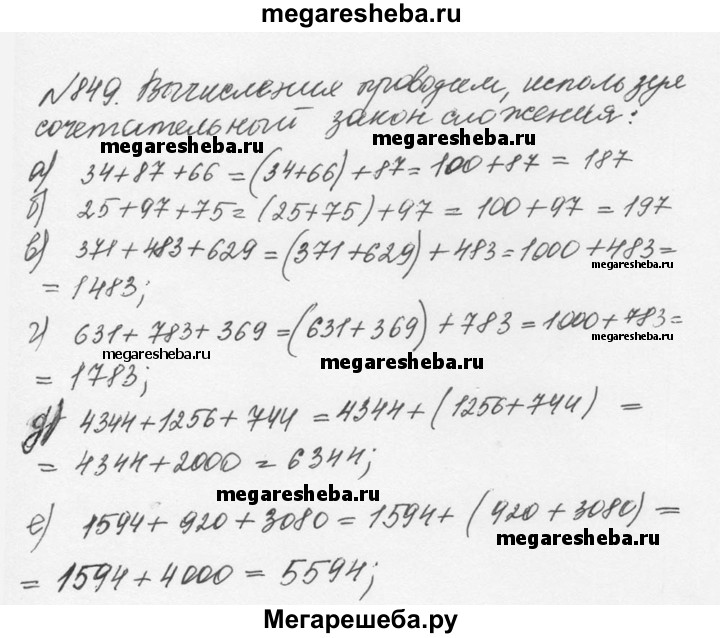 megaresheba.ru
№849. Вычисления проводим, используя
сочетательный закон сложения:
megaresheba.ru megaresheba.ru
а) 34+87+66=(34+66)+87=100+87=187
б) 25+97+75=(25+75)+97=100+97=197
в) 371+483+629=(371+629)+483=1000+483=
megaresheba.ru
=1483;
г) 631+783+369=(631+369)+783=1000+783=
megaresheba.ru megaresheba.ru megaresheba.ru
=1783;
д) 4344+1256+744=4344+(1256+744)=
=4344+2000=6344;
megaresheba.ru
е) 1594+920+3080=1594+(920+3080)=
megaresheba.ru
=1594+4000=5594;
Мегарешеба.ру